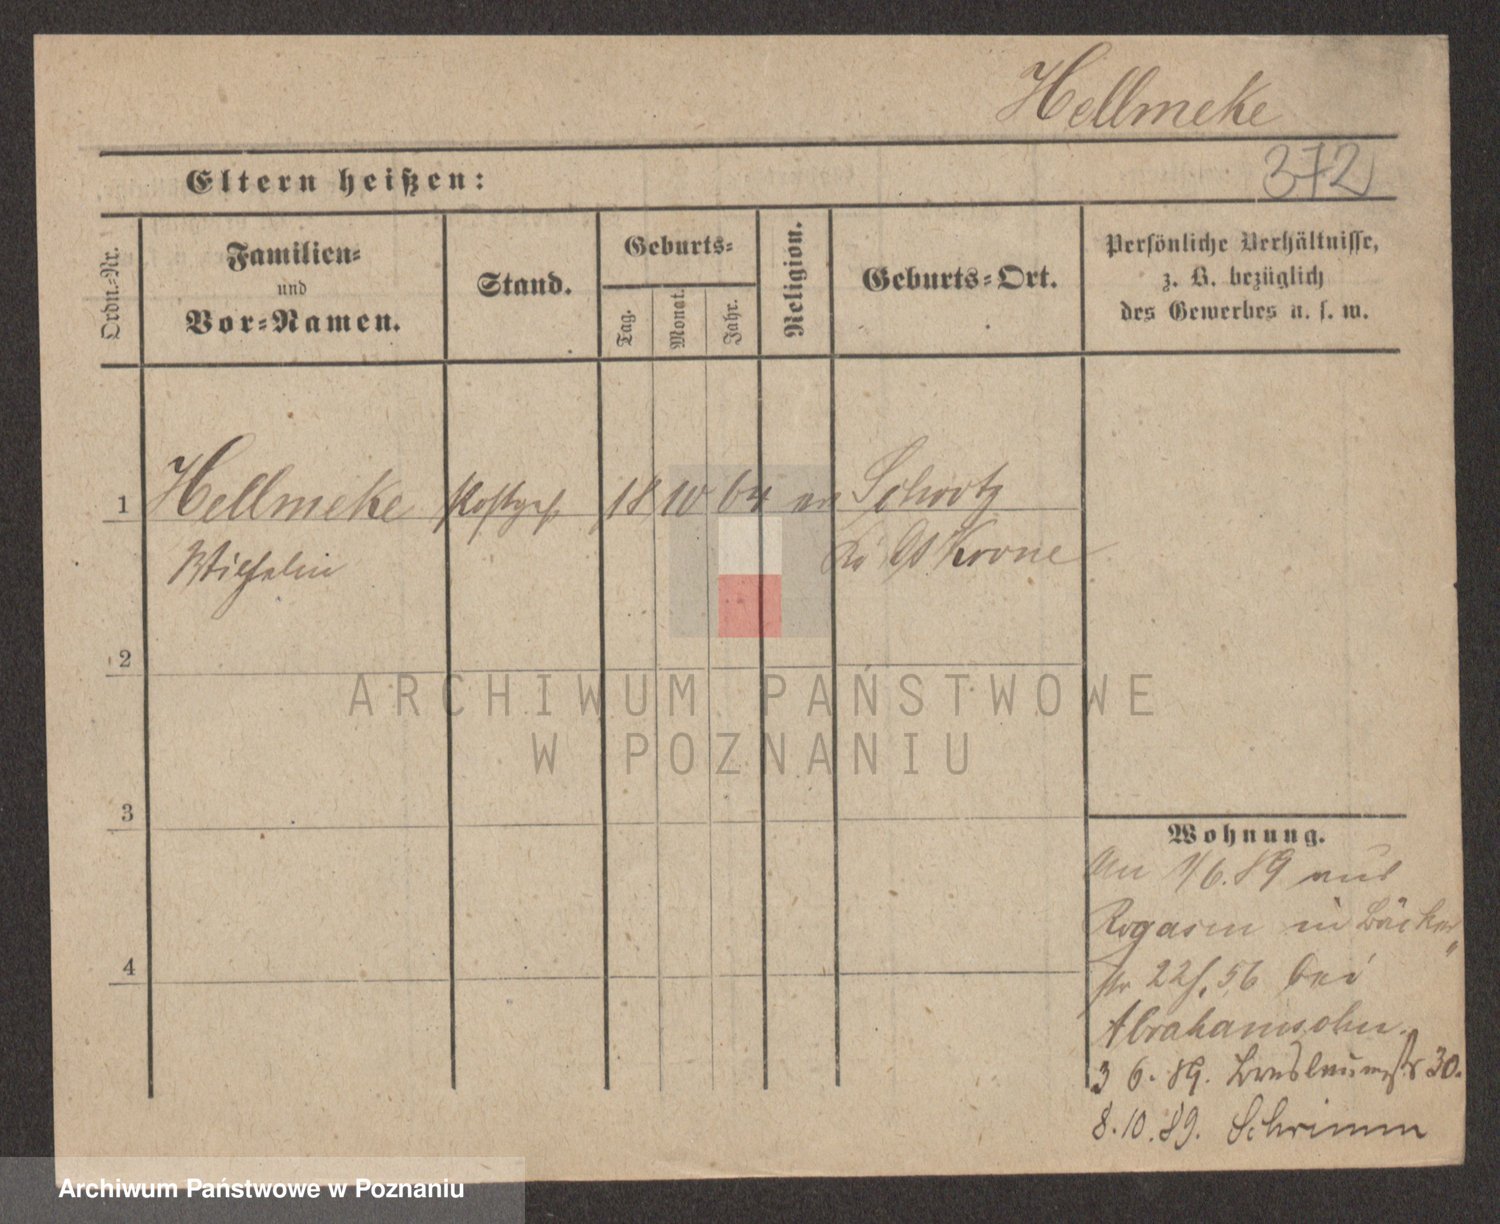 Hellmeke
372
Eltern heißen:
Ordn.-Nr.
Familien-
und
Vor-Namen.
Stand.
Geburts-
Tag.
Monat.
Jahr.
Religion.
Geburts-Ort.
Persönliche Verhältnisse,
z. B. bezüglich
des Gewerbes u. s. w.
1
Hellmeke
18 10 64 ev
Schrotz
Wilhelm
Kr Krone
2
ARCHIWUM PAŃSTWOWE
W POZNANIU
3
Wohnung.
An 1/6.89 aus
Rogasen in Bäcker
str 22/. 56 bei
4
Abrahamsohn.
3 6. 89. Breslauerstr 30.
8.10.89. Schrimm
Archiwum Państwowe w Poznaniu